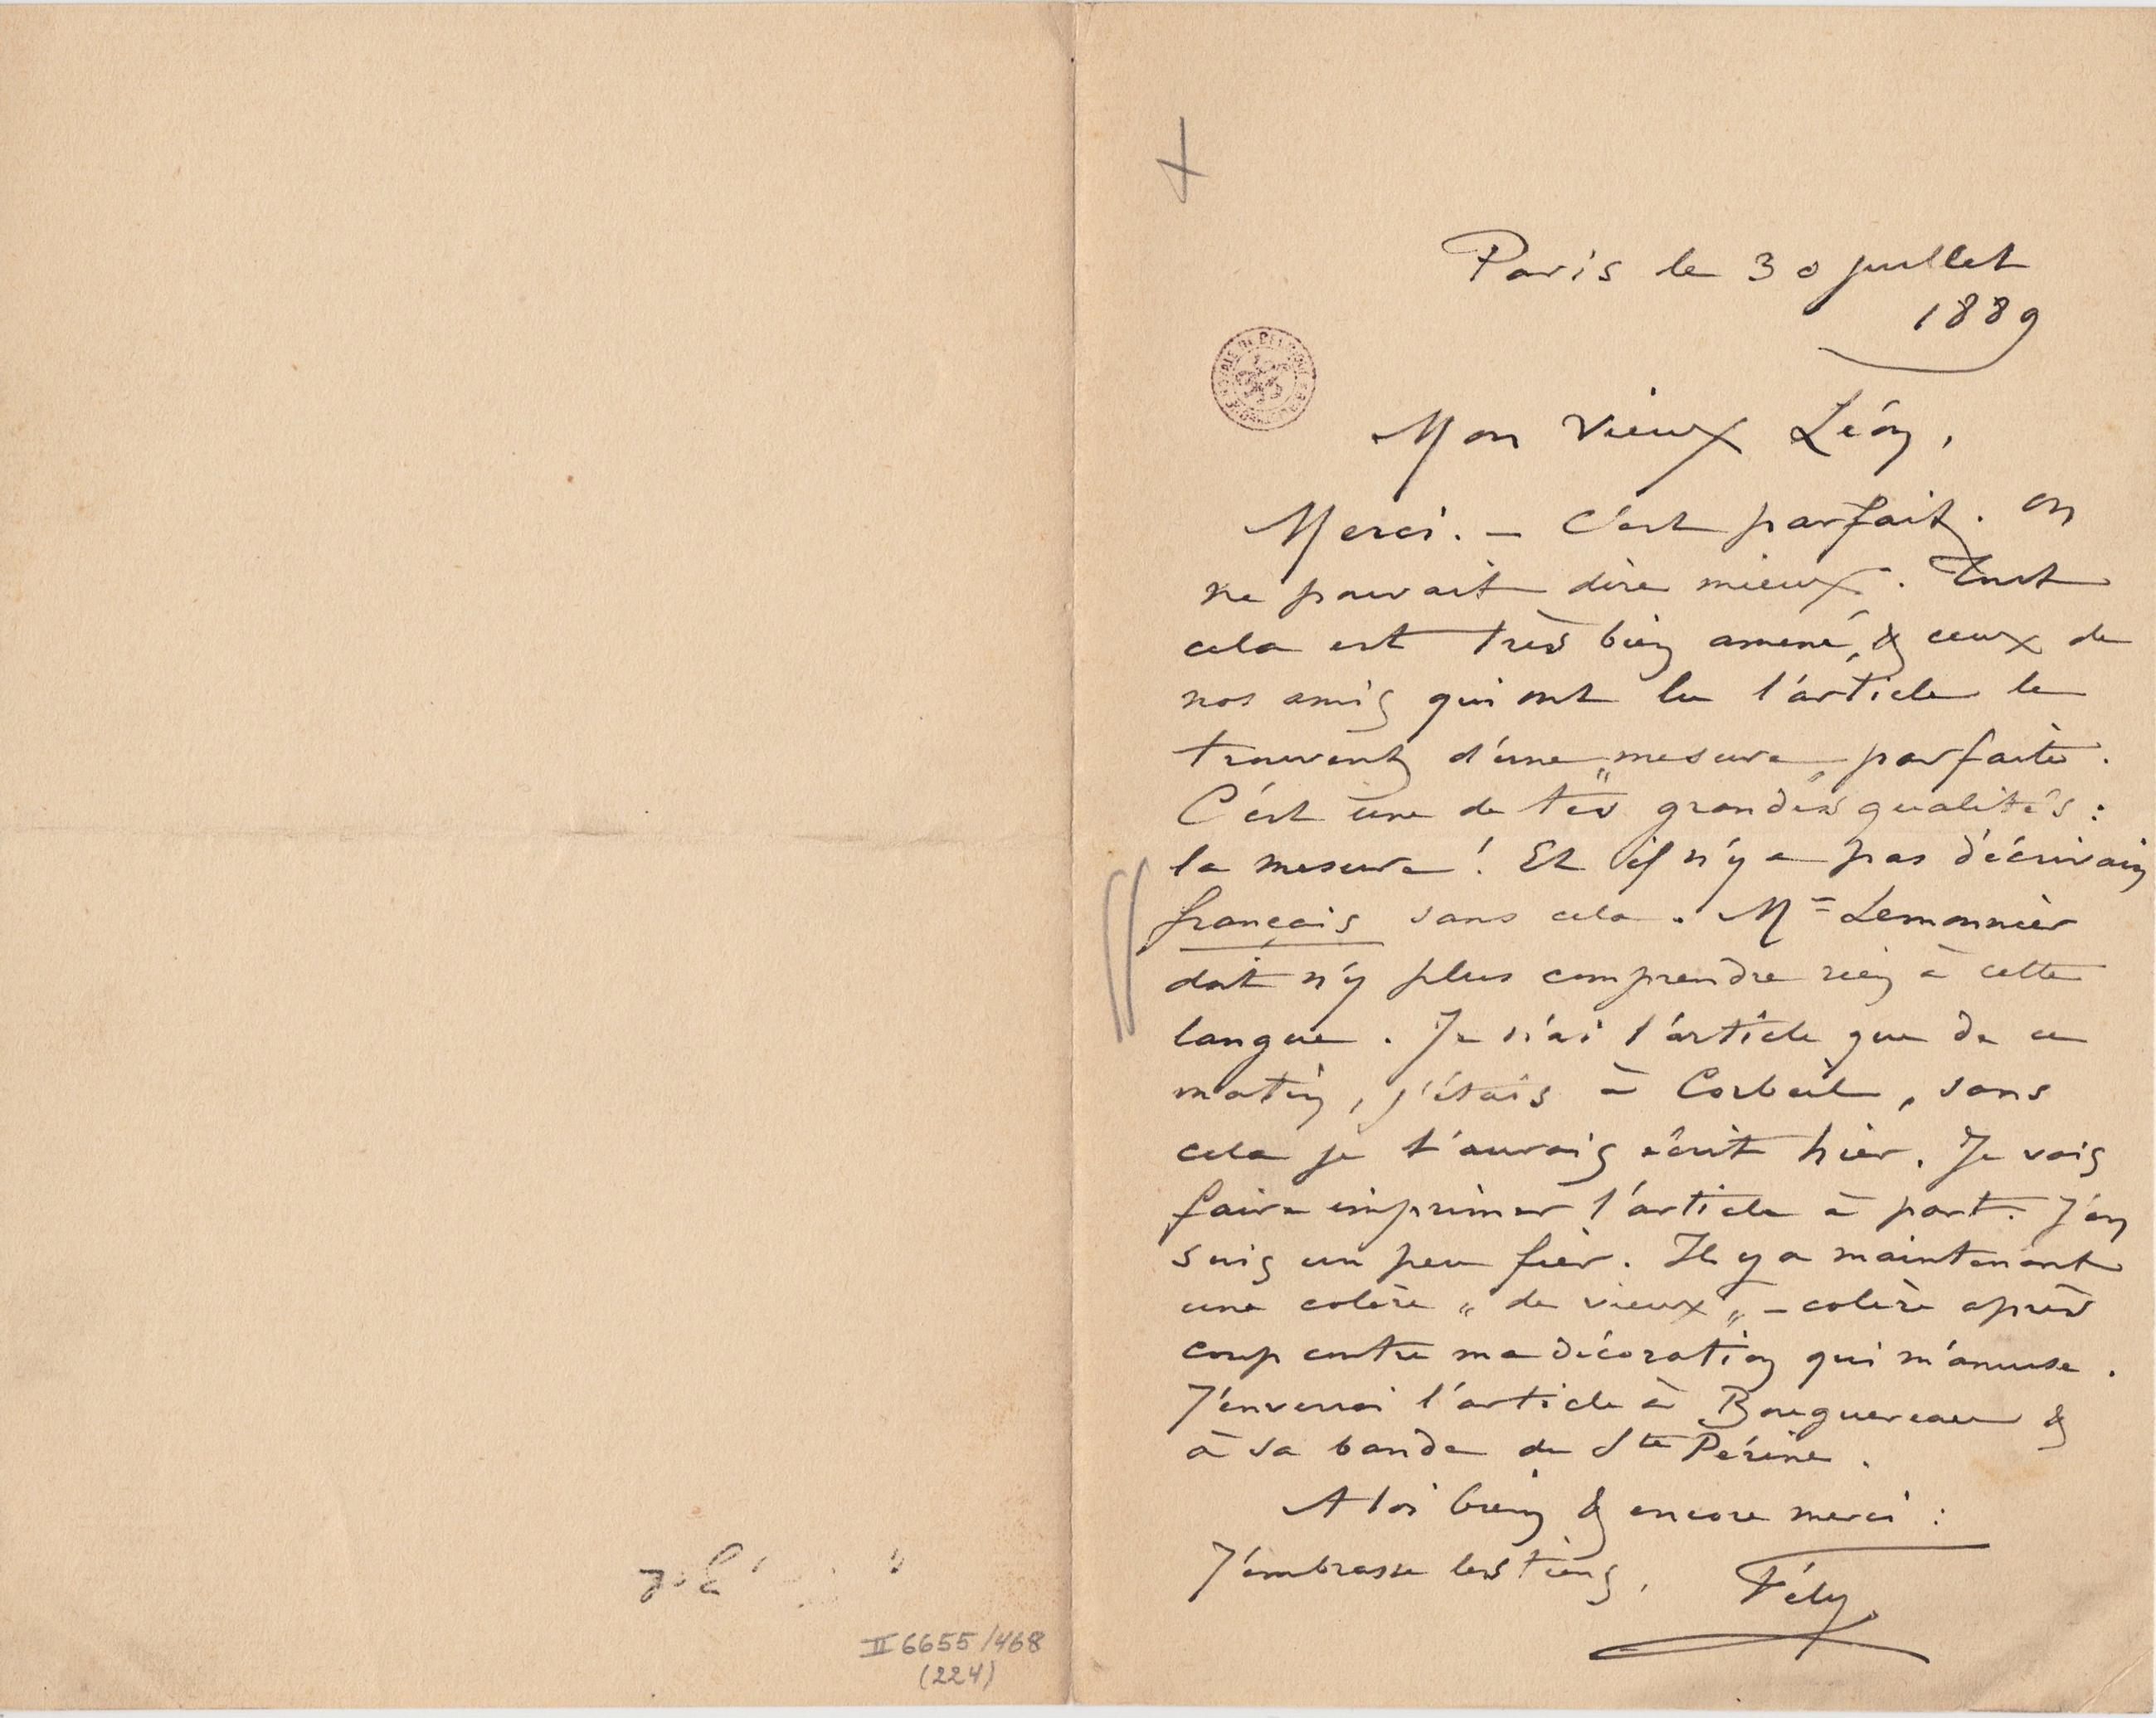 Paris le 30 juillet
1889
Mon vieux Léon,
Merci. – C'est parfait. On
ne pouvait dire mieux. Tout
cela est très bien amené, & ceux de
nos amis qui ont lu l'article le
trouvent d'une „mesure„ parfaite.
C'est une de tes grandes qualités :
la mesure ! Et il n'y a pas d'écrivain
français sans cela. M= Lemonnier
doit n'y plus comprendre rien à cette
langue. Je n'ai l'article que de ce
matin, j'étais à Corbeil, sans
cela je t'aurais écrit hier. Je vais
faire imprimer l'article à part. J'en
suis un peu fier. Il y a maintenant
une colère „ de vieux „ – colère après
coup contre ma décoration qui m'amuse.
J'enverrai l'article à Bouguereau &
à sa bande de Ste Périne.
A toi bien & encore merci :
J'embrasse les tiens, Fély
II 6655/468
(224)